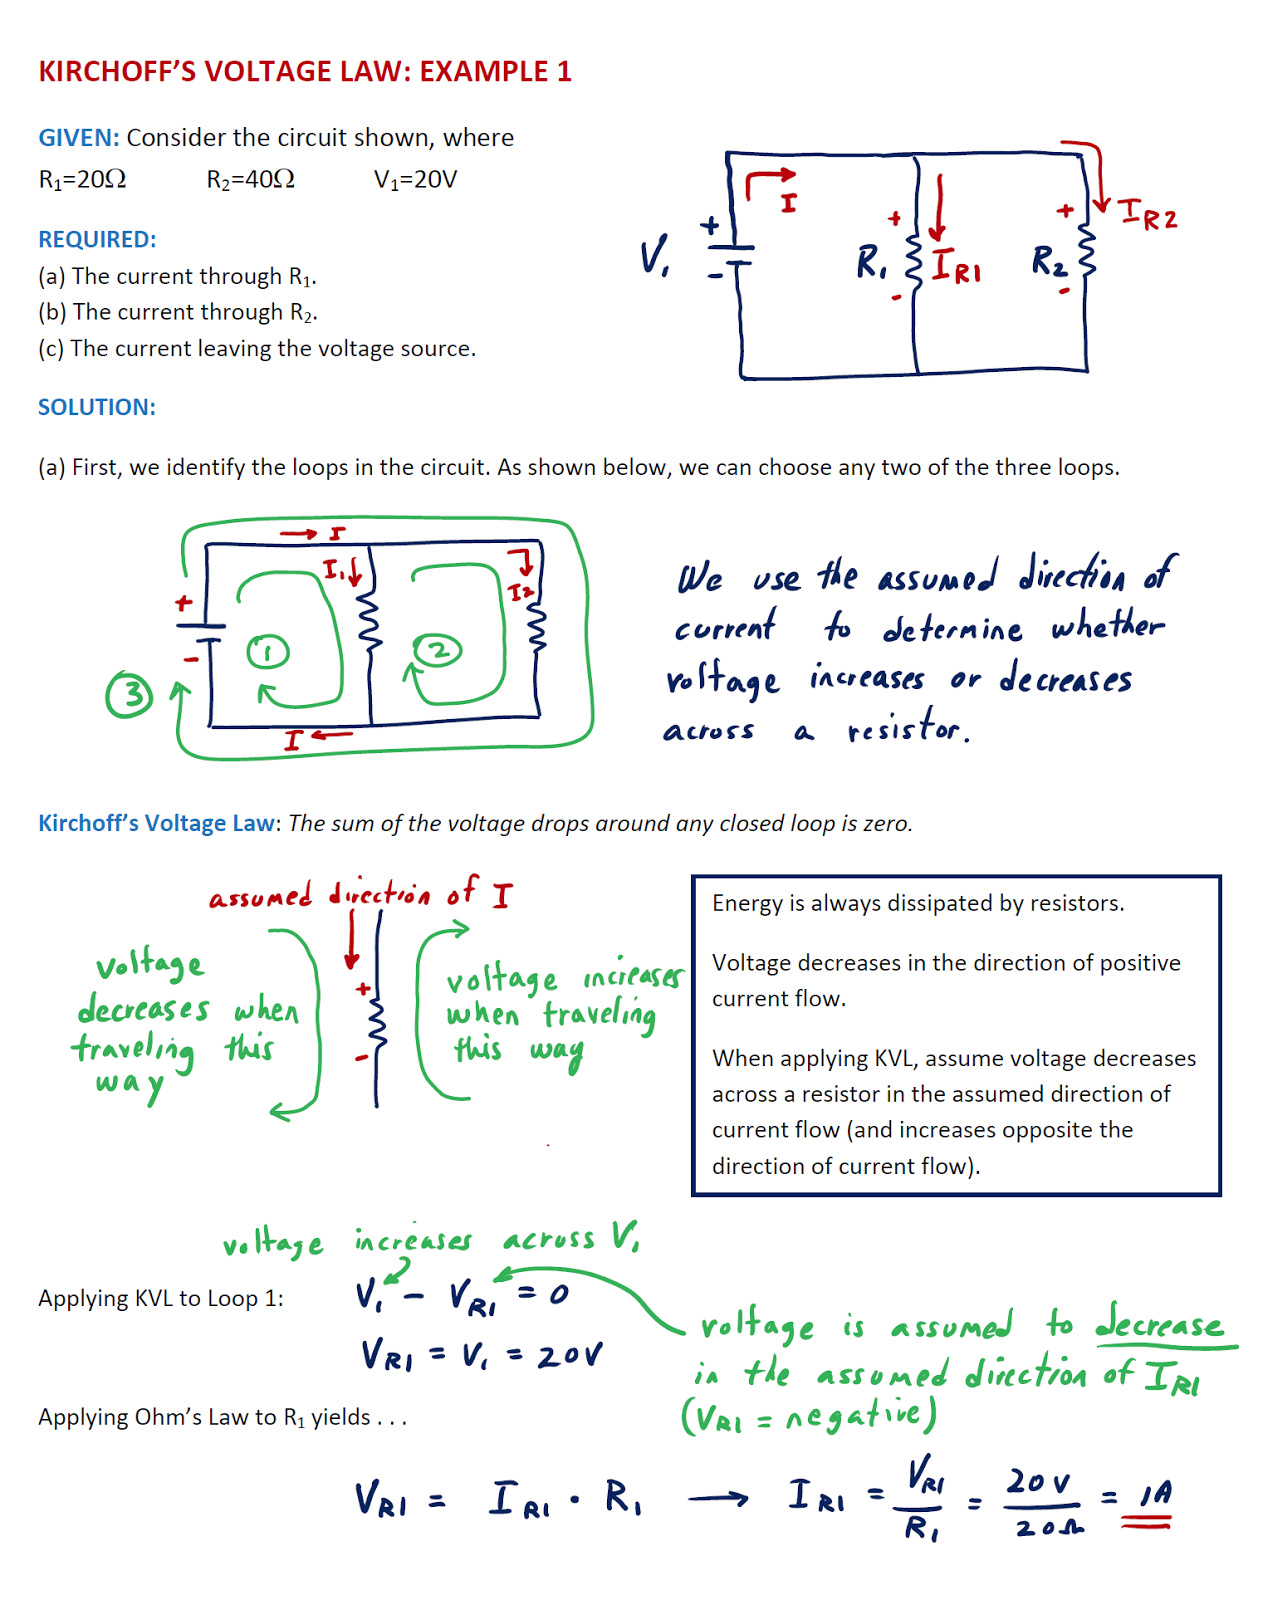 KIRCHOFF'S VOLTAGE LAW: EXAMPLE 1
GIVEN: Consider the circuit shown, where
R₁=20Ω R₂=40Ω V₁=20V
REQUIRED:
(a) The current through R₁.
(b) The current through R₂.
(c) The current leaving the voltage source.
I
+ + +
V₁ R₁ IR1 R₂ IR2
- - -
SOLUTION:
(a) First, we identify the loops in the circuit. As shown below, we can choose any two of the three loops.
I
I₁ I₂
+
-
1 2
3
I
We use the assumed direction of
current to determine whether
voltage increases or decreases
across a resistor.
Kirchoff's Voltage Law: The sum of the voltage drops around any closed loop is zero.
assumed direction of I
voltage
decreases when
traveling this
way
+
-
voltage increases
when traveling
this way
Energy is always dissipated by resistors.
Voltage decreases in the direction of positive
current flow.
When applying KVL, assume voltage decreases
across a resistor in the assumed direction of
current flow (and increases opposite the
direction of current flow).
voltage increases across V₁
Applying KVL to Loop 1: V₁ - VR1 = 0
VR1 = V₁ = 20V
voltage is assumed to decrease
in the assumed direction of IR1
(VR1 = negative)
Applying Ohm's Law to R₁ yields . . .
VR1 = IR1 · R₁ → IR1 = VR1/R₁ = 20V/20Ω = 1A